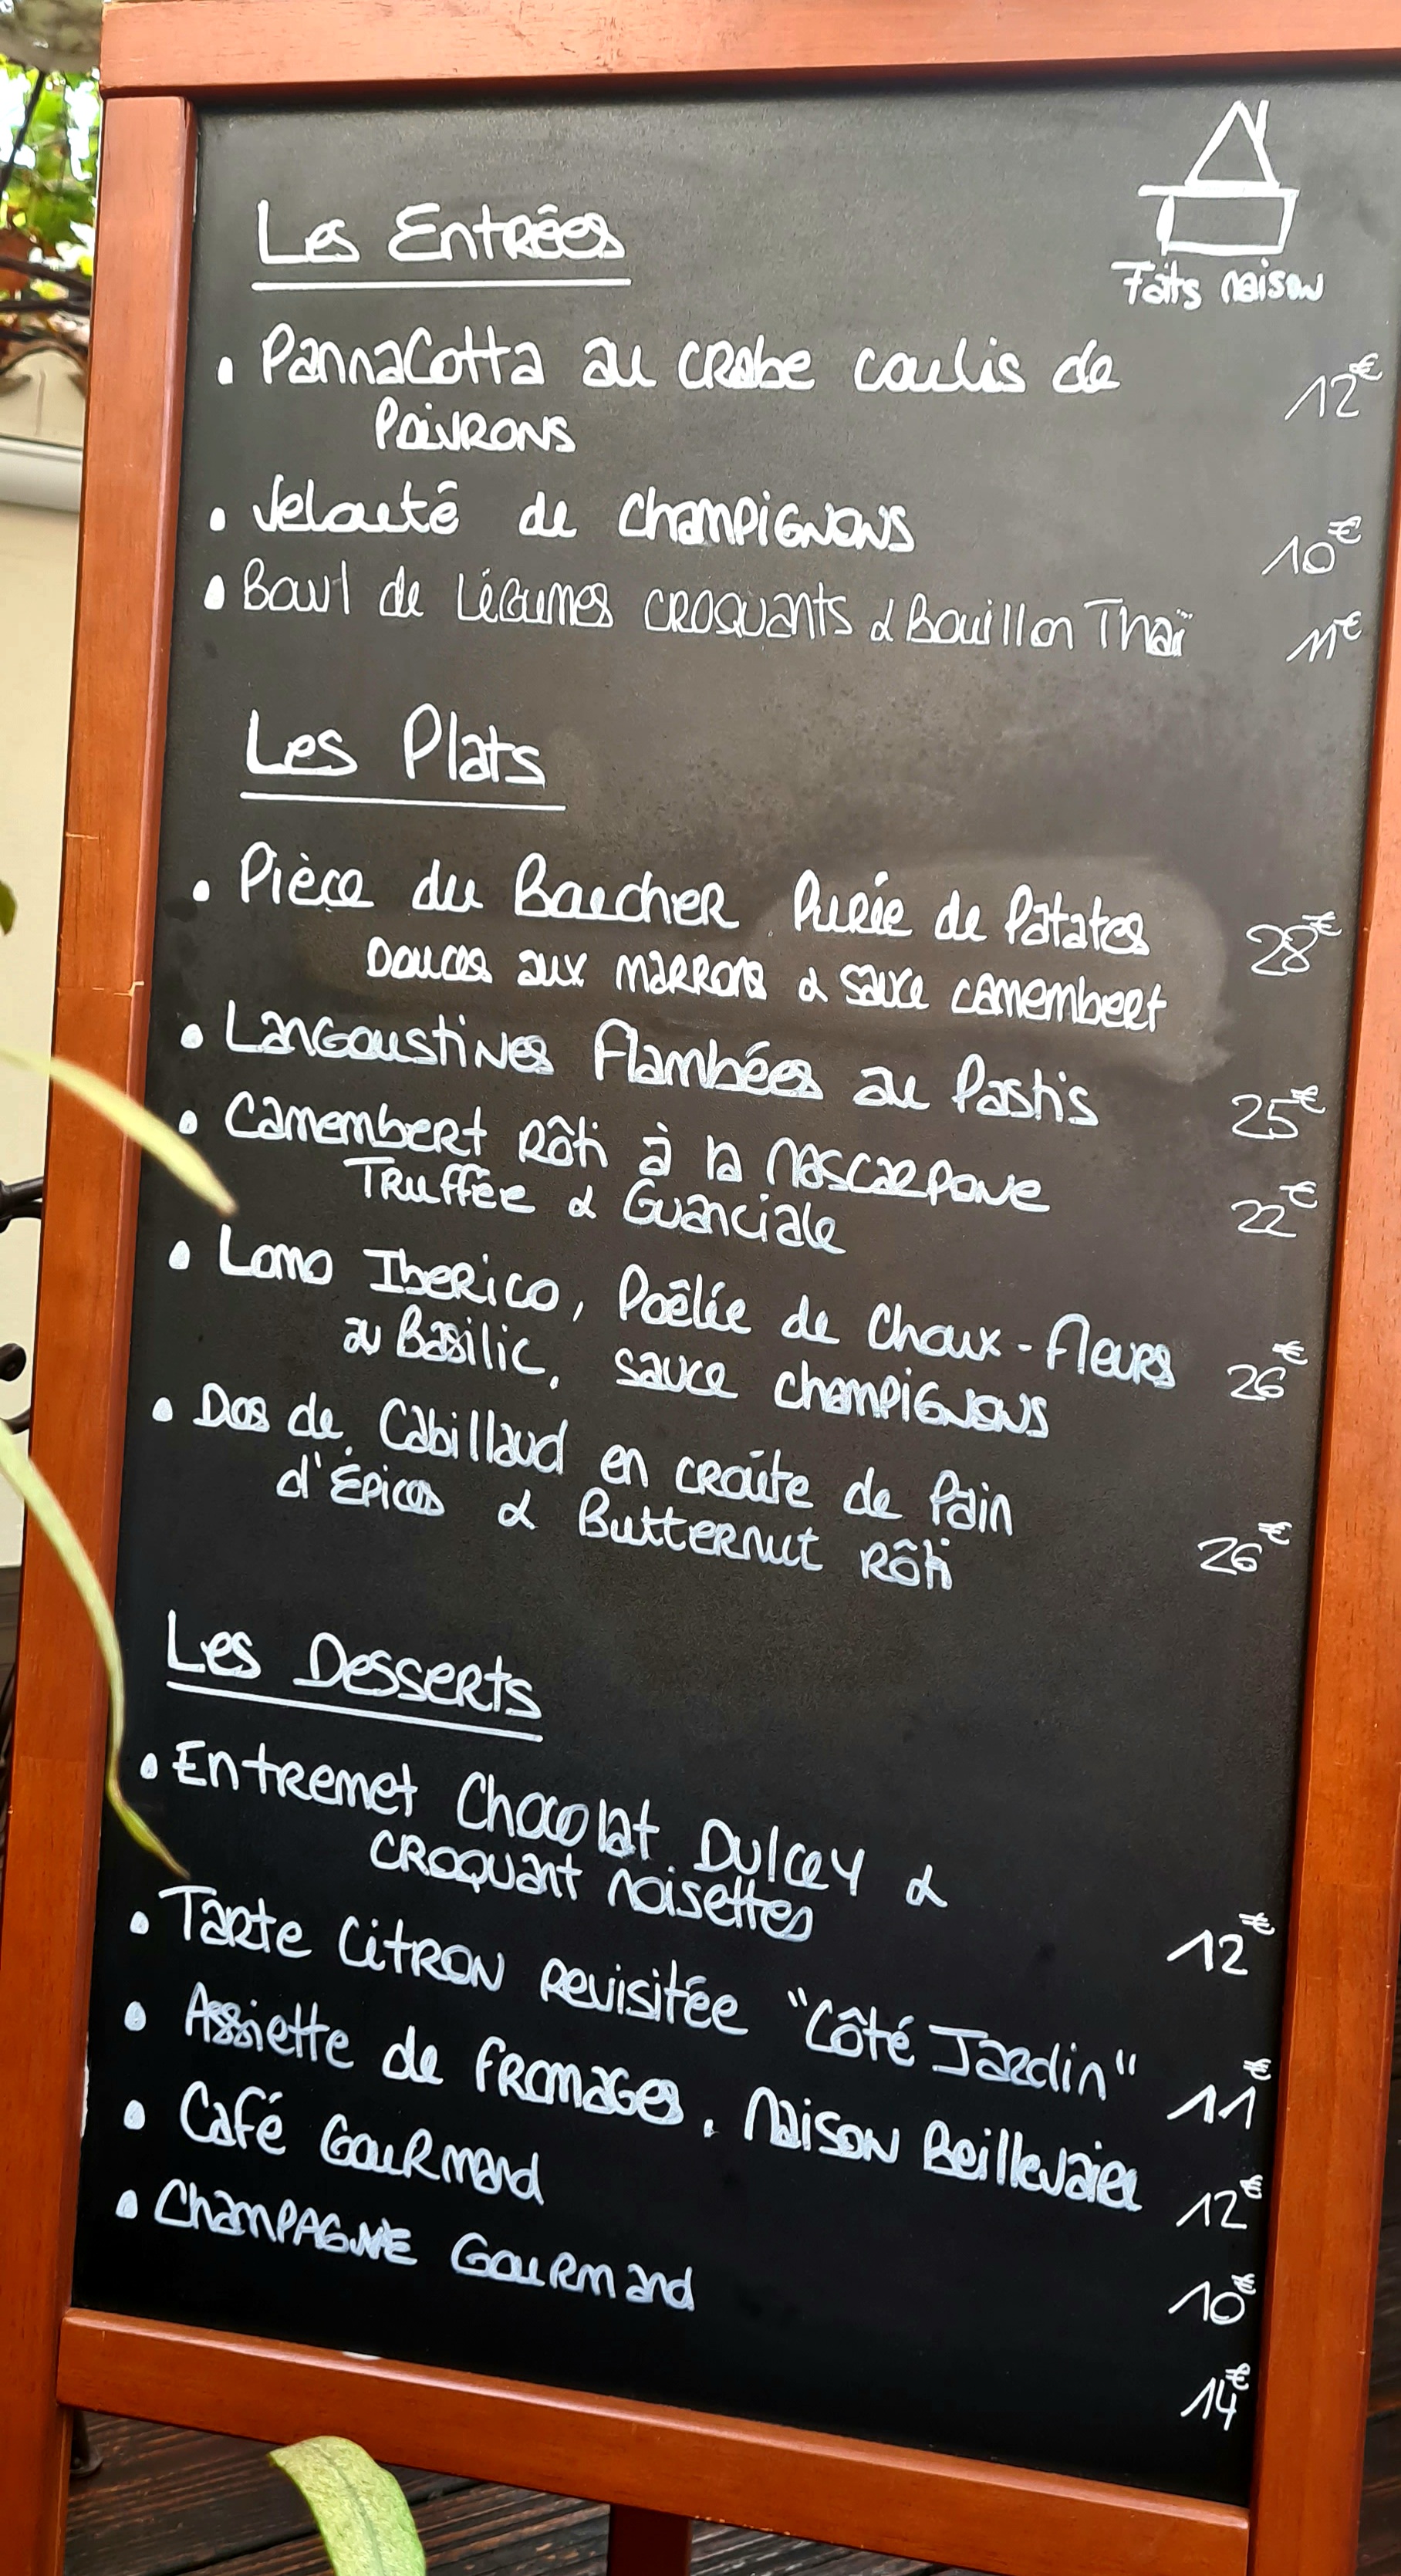 Faits maison
Les Entrées
• Pannacotta au crabe coulis de 12€
Poivrons
• Velouté de champignons 10€
• Bowl de Légumes croquants & Bouillon Thaï 11€
Les Plats
• Pièce du Boucher Purée de Patates 28€
Douces aux marrons & sauce camembert
• Langoustines Flambées au Pastis 25€
• Camembert Rôti à la Mascarpone 22€
Truffée & Guanciale
• Lomo Iberico, Poêlée de Choux-Fleurs 26€
au Basilic, sauce champignons
• Dos de Cabillaud en croûte de Pain
d'Épices & Butternut Rôti 26€
Les Desserts
• Entremet Chocolat Dulcey &
croquant noisettes 12€
• Tarte Citron revisitée "Côté Jardin" 11€
• Assiette de fromages, Maison Beillevaire 12€
• Café Gourmand 10€
• Champagne Gourmand 14€